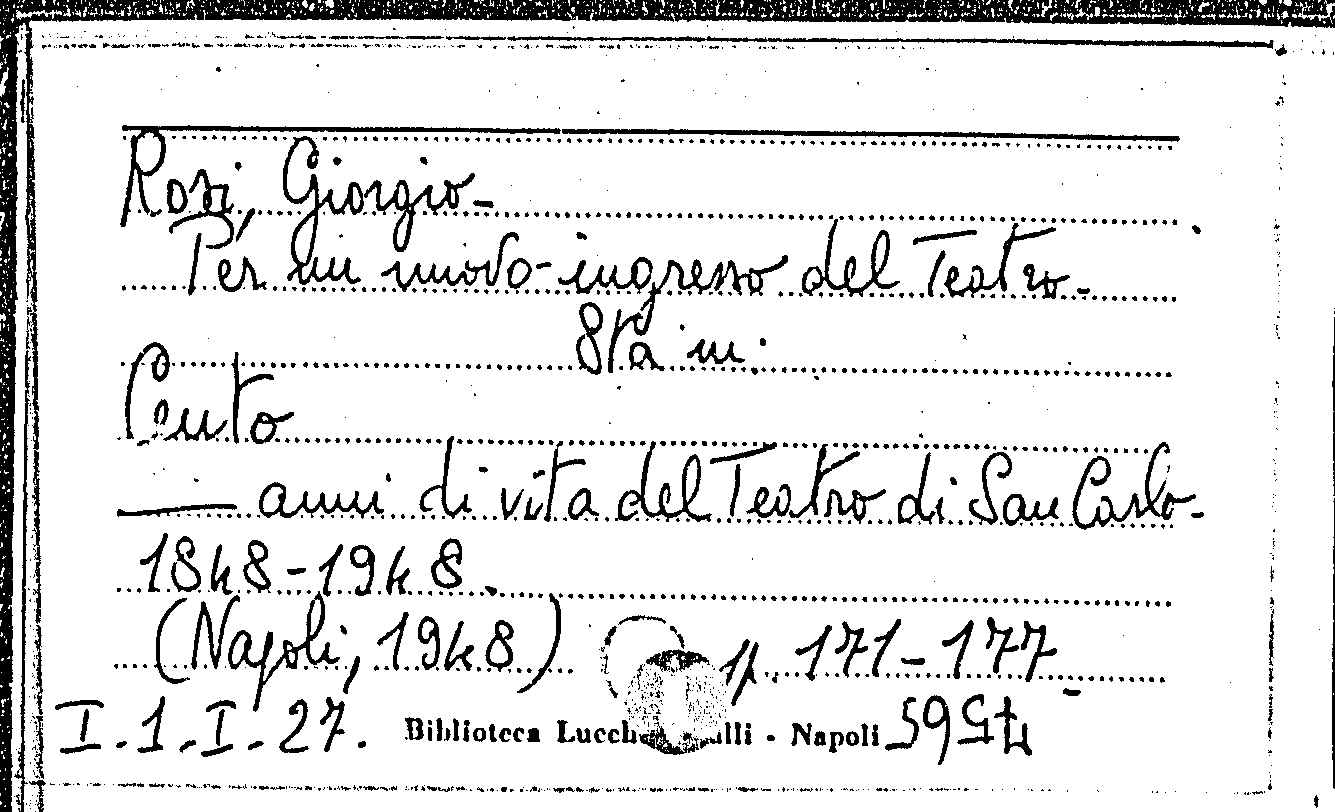 Rosi, Giorgio-
Per un nuovo ingresso del Teatro.
Sta in:
Cento
— anni di vita del Teatro di San Carlo-
1848-1948.
(Napoli, 1948) p. 171-177
I.1.I.27. Biblioteca Lucch lli - Napoli